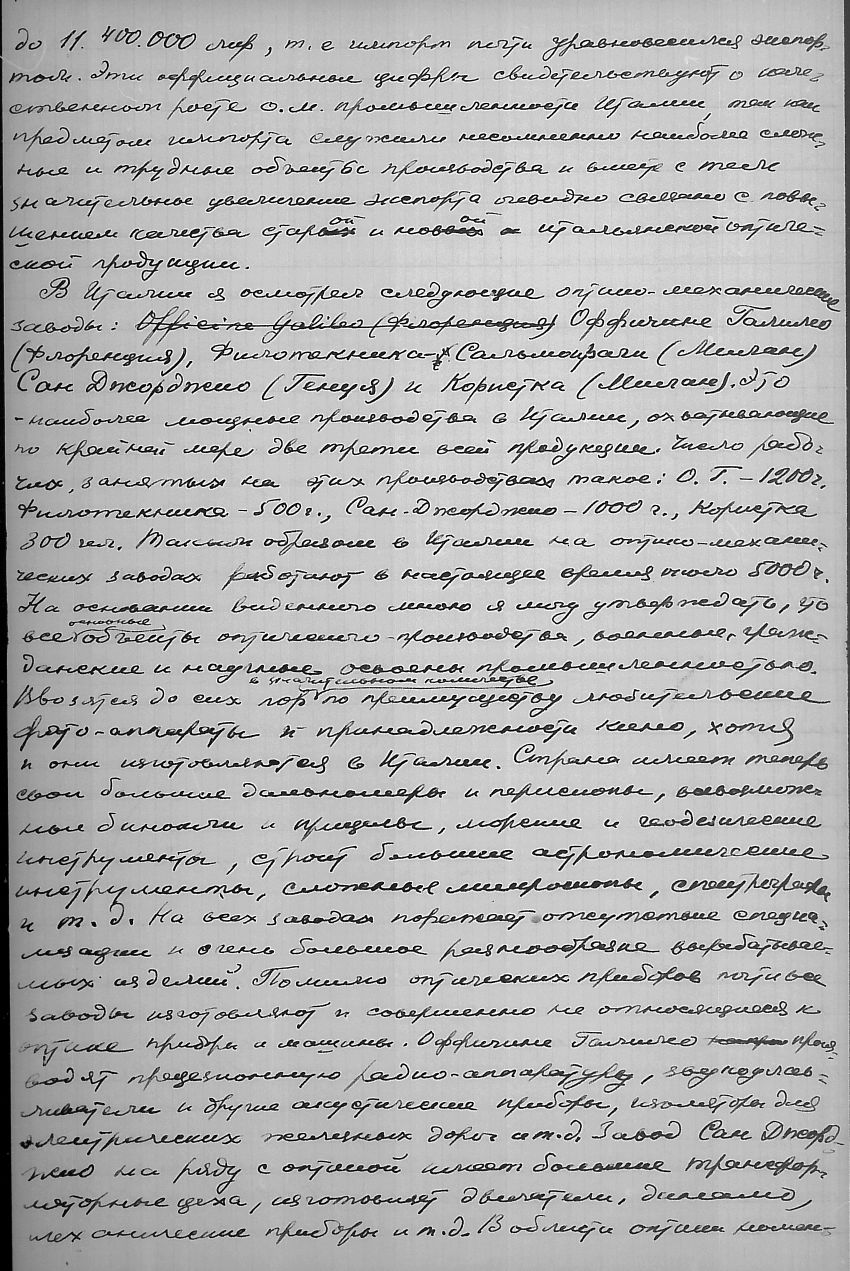 до 11.400.000 лир, т.е импорт почти уравновесился экспор-
том. Эти оффициальные цифры свидетельствуют о каче-
ственном росте о.м. промышленности Италии, так как
предметом импорта служили несомненно наиболее слож-
ные и трудные объекты производства и вместе с тем
значительное увеличение экспорта очевидно связано с повы-
шением качества старой и новой итальянской оптиче-
ской продукции.
В Италии я осмотрел следующие оптико-механические
заводы: Officine Galileo (Флоренция) Оффичине Галилео
(Флоренция), Филотекника-Сальмойраги (Милан)
Сан Джорджио (Генуя) и Користка (Милан). Это
-наиболее мощные производства в Италии, охватывающие
по крайней мере две трети всей продукции. Число рабо-
чих, занятых на этих производствах такое: О.Г. – 1200ч.
Филотекника – 500ч., Сан-Джорджио – 1000 ч., Користка
300 чел. Таким образом в Италии на оптико-механи-
ческих заводах работают в настоящее время около 5000ч.
На основании виденного мною я могу утверждать, что
все основные объекты оптического производства, военные, граж-
данские и научные освоены промышленностью.
Ввозятся до сих пор в значительном количестве по преимуществу любительские
фото-аппараты и принадлежности кино, хотя
и они изготовляются в Италии. Страна имеет теперь
свои большие дальномеры и перископы, всевозмож-
ные бинокли и прицелы, морские и геодезические
инструменты, строит большие астрономические
инструменты, сложные микроскопы, спектрографы
и т.д. На всех заводах поражает отсутствие специа-
лизации и очень большое разнообразие вырабатывае-
мых изделий. Помимо оптических приборов почти все
заводы изготовляют и совершенно не относящиеся к
оптике приборы и машины. Оффичине Галилео произ-
водят прецезионную радио-аппаратуру, звукоулав-
ливатели и другие акустические приборы, изоляторы для
электрических железных дорог и т.д. Завод Сан Джорд-
жио на ряду с оптикой имеет большие трансфор-
маторные цеха, изготовляет двигатели, динамо,
механические приборы и т.д. В области оптики номен-